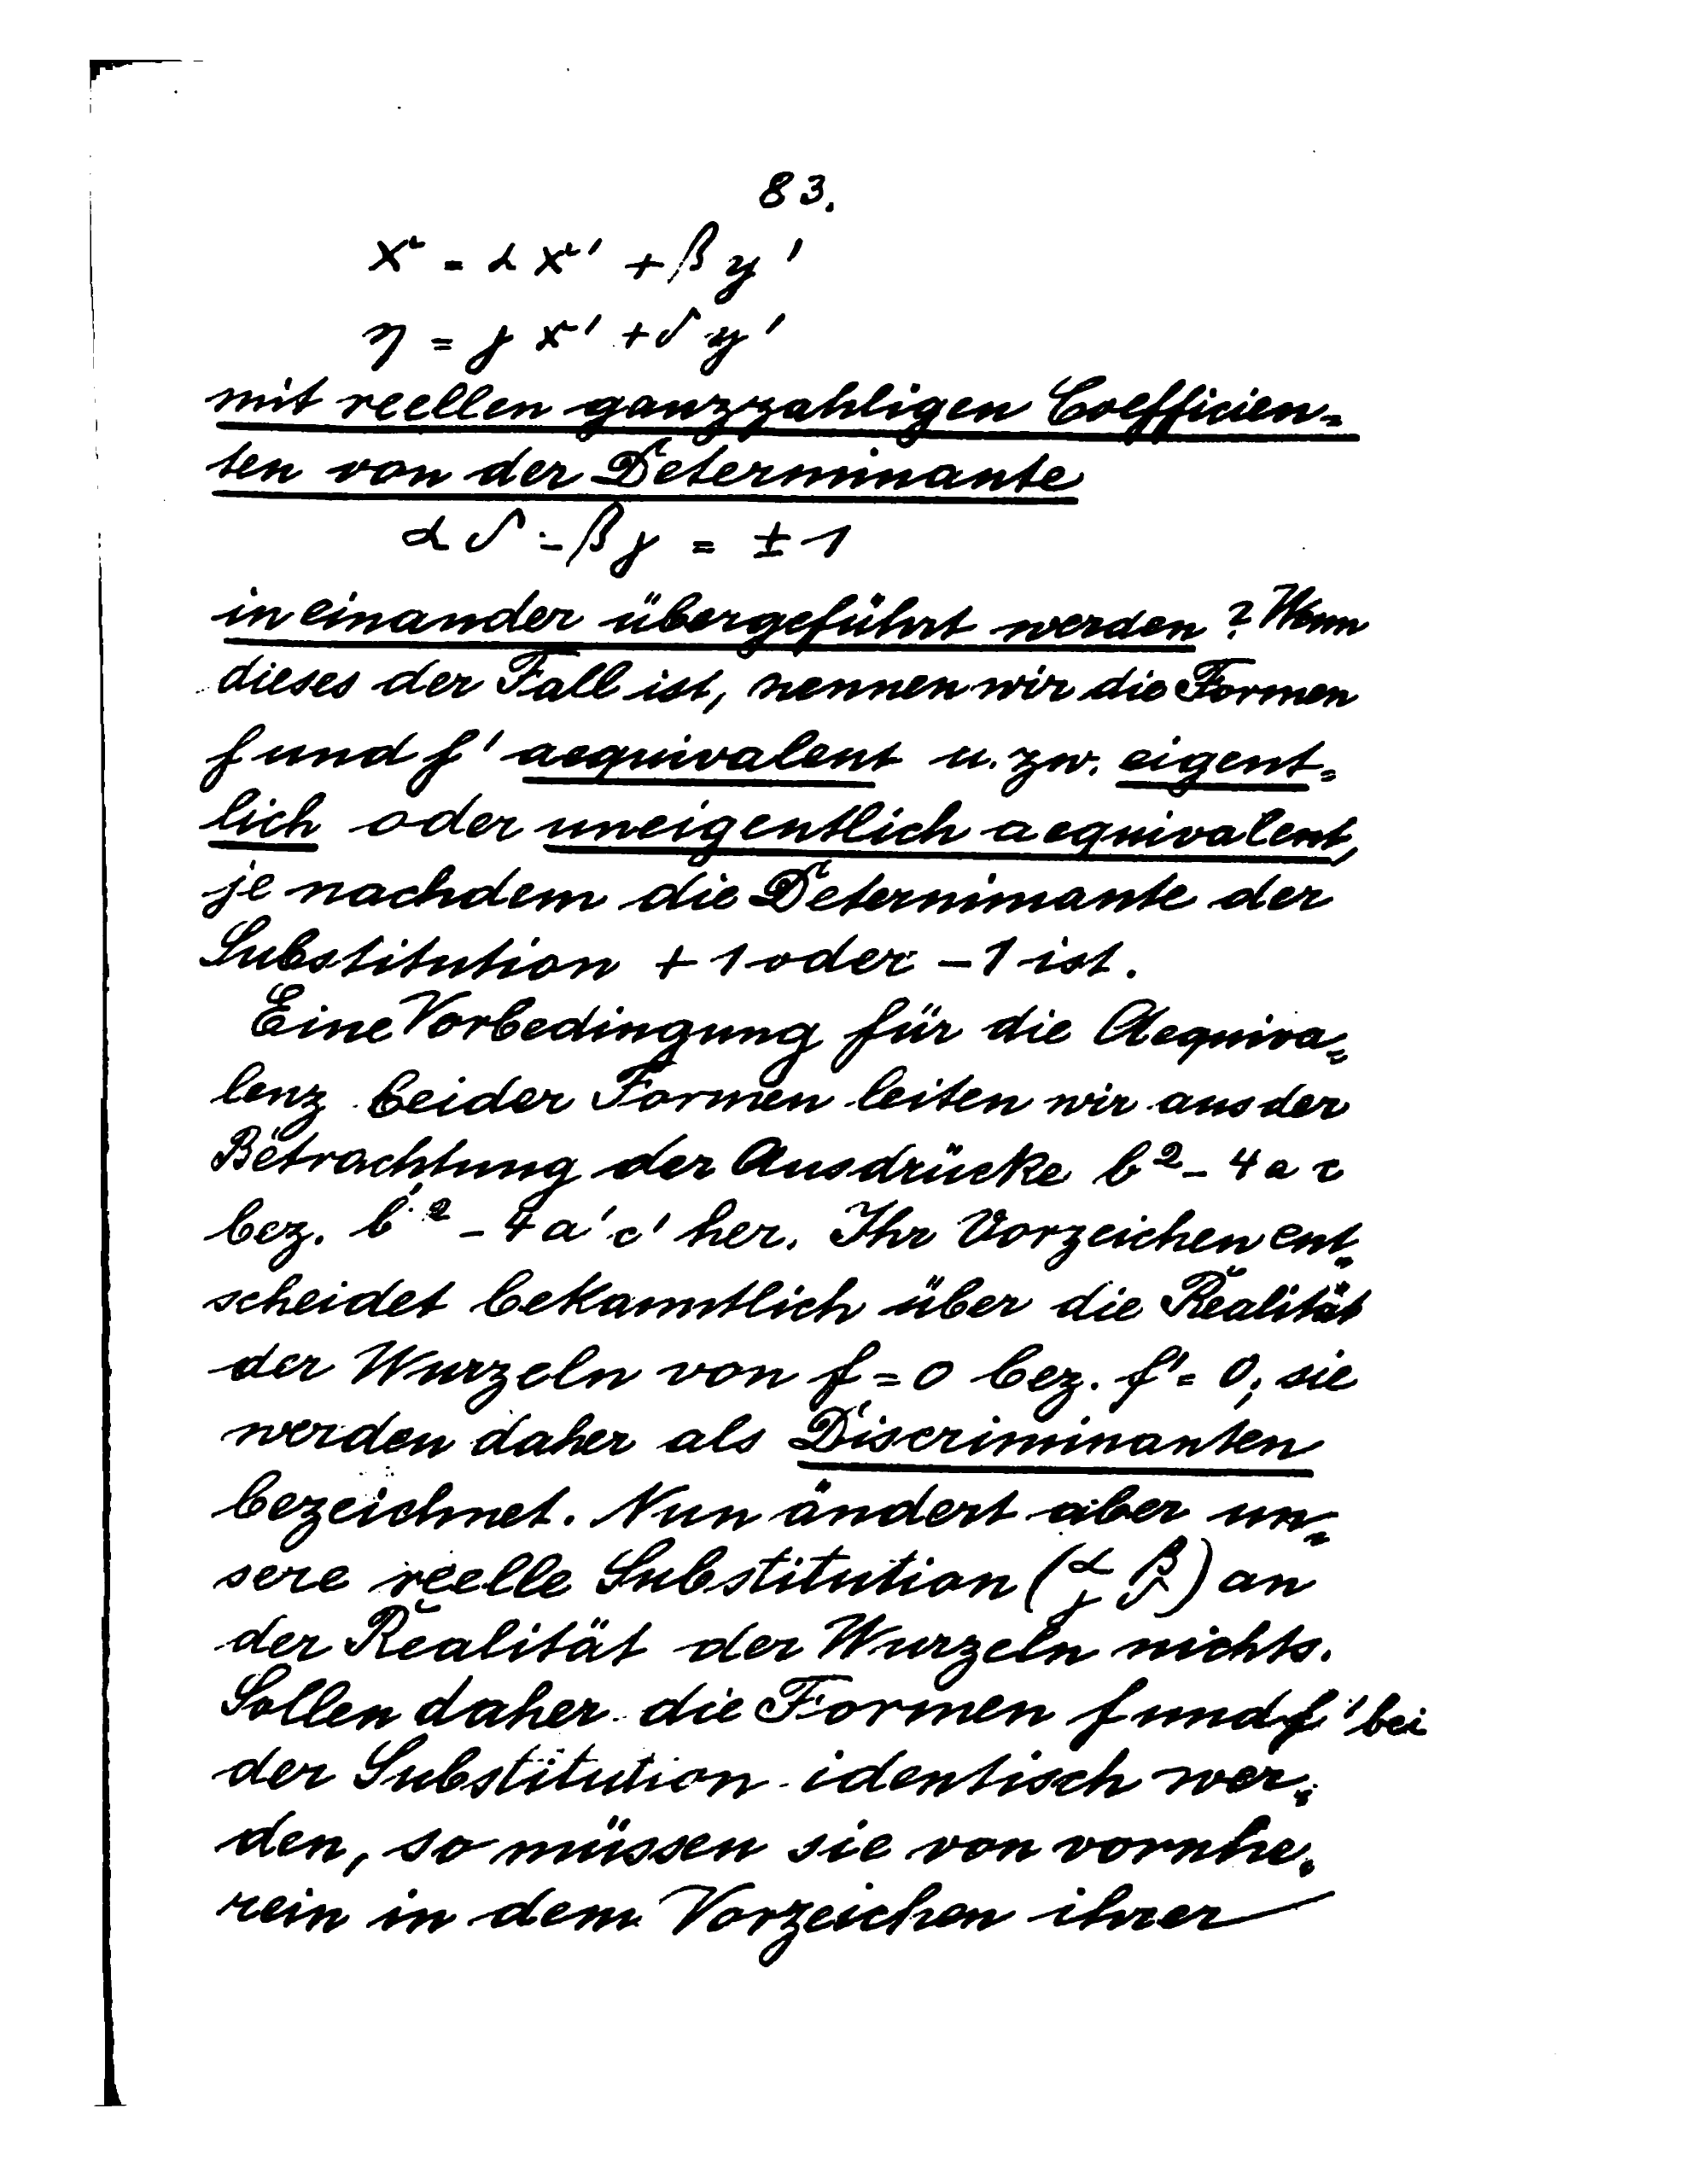 83.
x = α x' + β y'
η = γ x' + δ y'
mit reellen ganzzahligen Coefficien-
ten von der Determinante
α δ - β γ = ± 1
in einander übergeführt werden? Wenn
dieses der Fall ist, nennen wir die Formen
f und f' aequivalent u. zw. eigent-
lich oder uneigentlich aequivalent,
je nachdem die Determinante der
Substitution + 1 oder - 1 ist.
Eine Vorbedingung für die Aequiva-
lenz beider Formen leiten wir aus der
Betrachtung der Ausdrücke b² - 4 a c
bez. b'² - 4 a' c' her. Ihr Vorzeichen ent-
scheidet bekanntlich über die Realität
der Wurzeln von f = 0 bez. f' = 0; sie
werden daher als Discriminanten
bezeichnet. Nun ändert aber un-
sere reelle Substitution (α β γ δ) an
der Realität der Wurzeln nichts.
Sollen daher die Formen f und f' bei
der Substitution identisch wer-
den, so müssen sie von vornhe-
rein in dem Vorzeichen ihrer